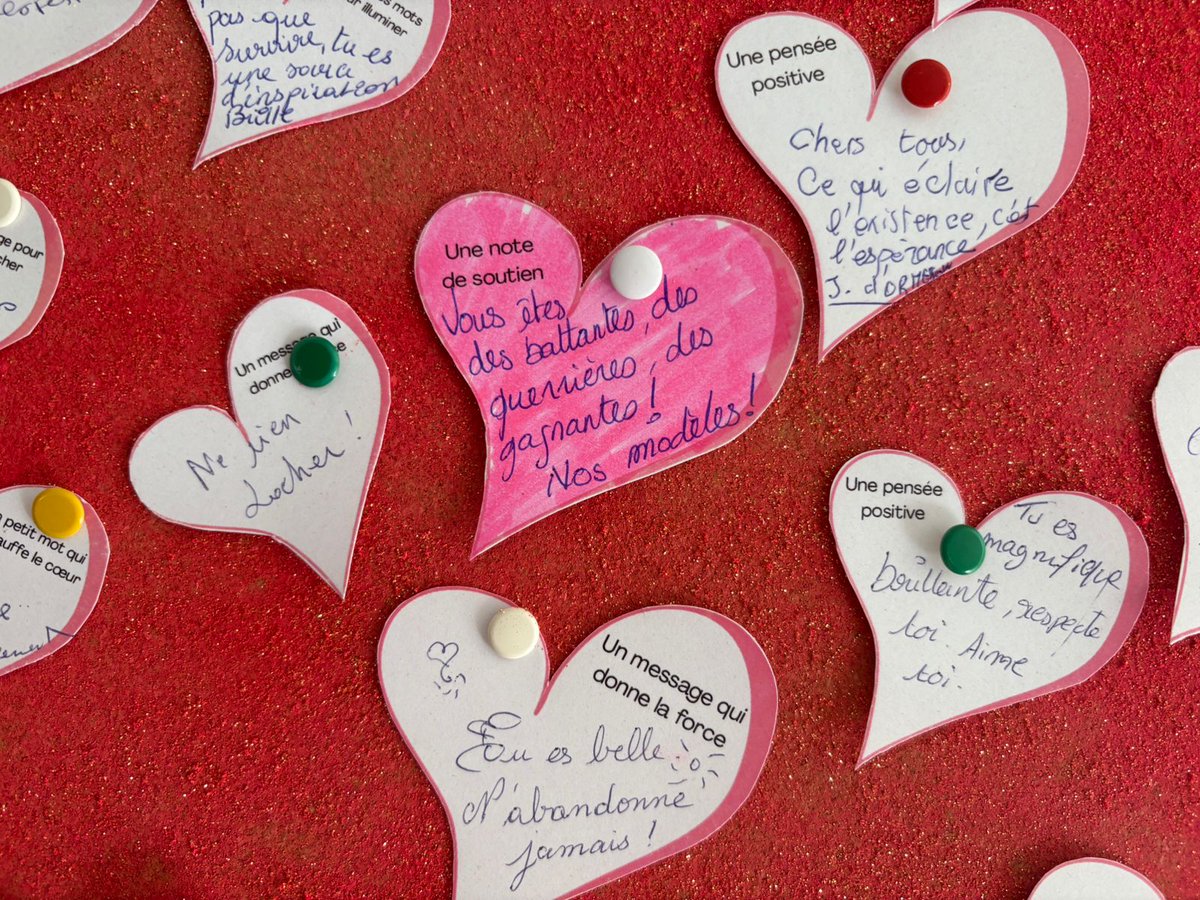 pas que
survivre, tu es
une
d'inspiration
mots
illuminer
Une pensée
positive
Chers tous,
Ce qui éclaire
l'existence, c'est
l'espérance
J. d'ORMESSON
Une note
de soutien
Vous êtes
des battantes, des
guerrières, des
gagnantes !
Nos modèles !
pour
Un message qui
donne
Ne rien
Lacher !
petit mot qui
le cœur
Une pensée
positive
Tu es
magnifique
brillante, respecte
toi. Aime
toi.
Un message qui
donne la force
Tu es belle
N'abandonne
jamais !